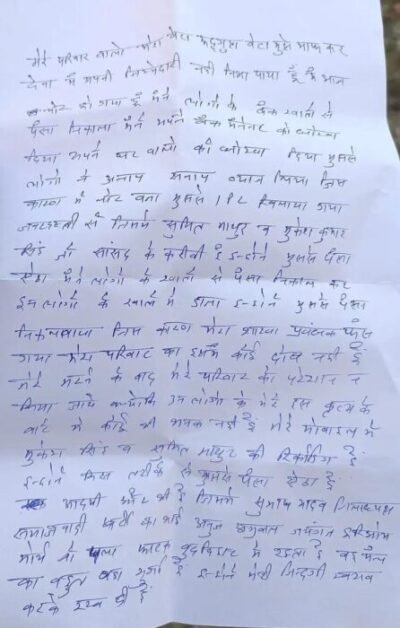 मेरे परिवार वालो मेरा बेटा मुझे माफ कर
देना मैं अपनी जिम्मेदारी नही निभा पाया हूँ मैं आज
चोर हो गया हूँ मैंने लोगो के बैंक खातो से
पैसा निकाला मैंने अपने बैंक मैनेजर को धोखा
दिया अपने घर वालो को धोखा दिया मुझसे
लोगो ने अनाप सनाप ब्याज लिया जिस
कारण मैं चोर बना मुझसे IPL खिलाया गया
जबरदस्ती से जिसमे सुमित माथुर व मुकेश कुमार
सिंह जो सांसद के करीबी है इन्होने मुझसे पैसा
ऐंठा मैंने लोगो के खातो से पैसा निकाल कर
इन लोगो के खाते मे डाला इन्होने मुझसे पैसा
निकलवाया जिस कारण मेरा शाखा प्रबंधक फँस
गया मेरा परिवार का इसमे कोई दोष नही है
मेरे मरने के बाद मेरे परिवार को परेशान न
किया जाये क्योकि उन लोगो के मेरे इस कृत्य के
बारे मे कोई भी भनक नही है मेरे मोबाइल मे
मुकेश सिंह व सुमित माथुर की रिकॉर्डिंग है
इन्होने किस तरीके से मुझसे पैसा ऐंठा है
एक आदमी और भी है जिसमे सुभाष यादव जिलाध्यक्ष
समाजवादी पार्टी का भाई
मे रहता है वह
का बहुत बडा है इन्होने मेरी जिन्दगी खराब
करके रख दी है